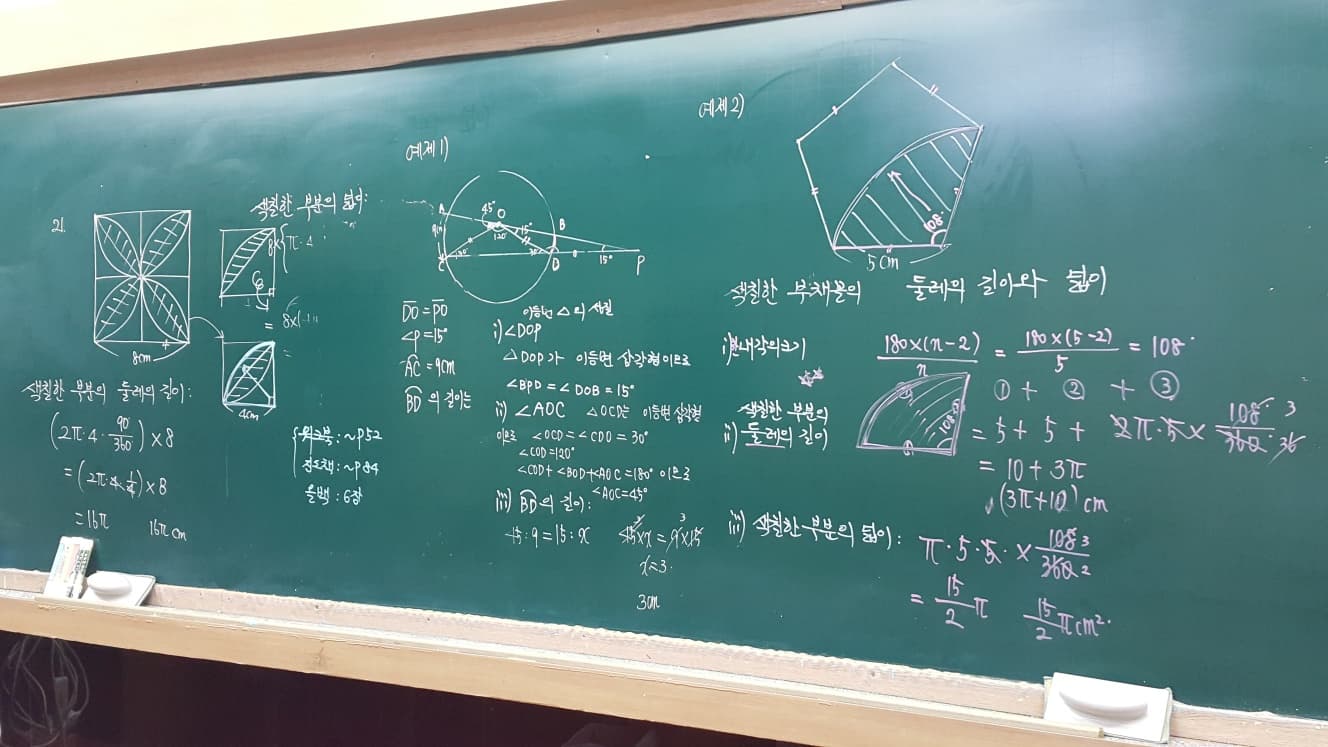 21.
8cm
색칠한 부분의 둘레의 길이:
(2π·4·90/360)×8
=(2π·4·1/4)×8
=16π 16π cm
색칠한 부분의 넓이:
8×{π·4
= 8×(
=
4cm
워크북: ~p52
~p84
6장
예제1)
A 45° O
15° B
120°
C 30° 30° D 15° P
DO = PO
∠P = 15°
AC = 9cm
BD 의 길이는
이등변 △의 성질
i) ∠DOP
△DOP가 이등변 삼각형 이므로
∠BPD = ∠DOB = 15°
ii) ∠AOC △OCD는 이등변 삼각형
이므로 ∠OCD = ∠CDO = 30°
∠COD = 120°
∠COD + ∠BOD + ∠AOC = 180° 이므로
∠AOC = 45°
iii) BD의 길이:
45:9 = 15:x 45×x = 9×15 3
x = 3
3cm
예제2)
108°
5cm
색칠한 부채꼴의 둘레의 길이와 넓이
i) 한 내각의 크기 180×(n-2)/n = 180×(5-2)/5 = 108°
① + ② + ③
색칠한 부분의
ii) 둘레의 길이 108° = 5 + 5 + 2π·5× 108° 3/360° 36
= 10 + 3π
(3π+10) cm
iii) 색칠한 부분의 넓이: π·5·5·× 108 3/360 2
= 15/2 π 15/2 π cm²